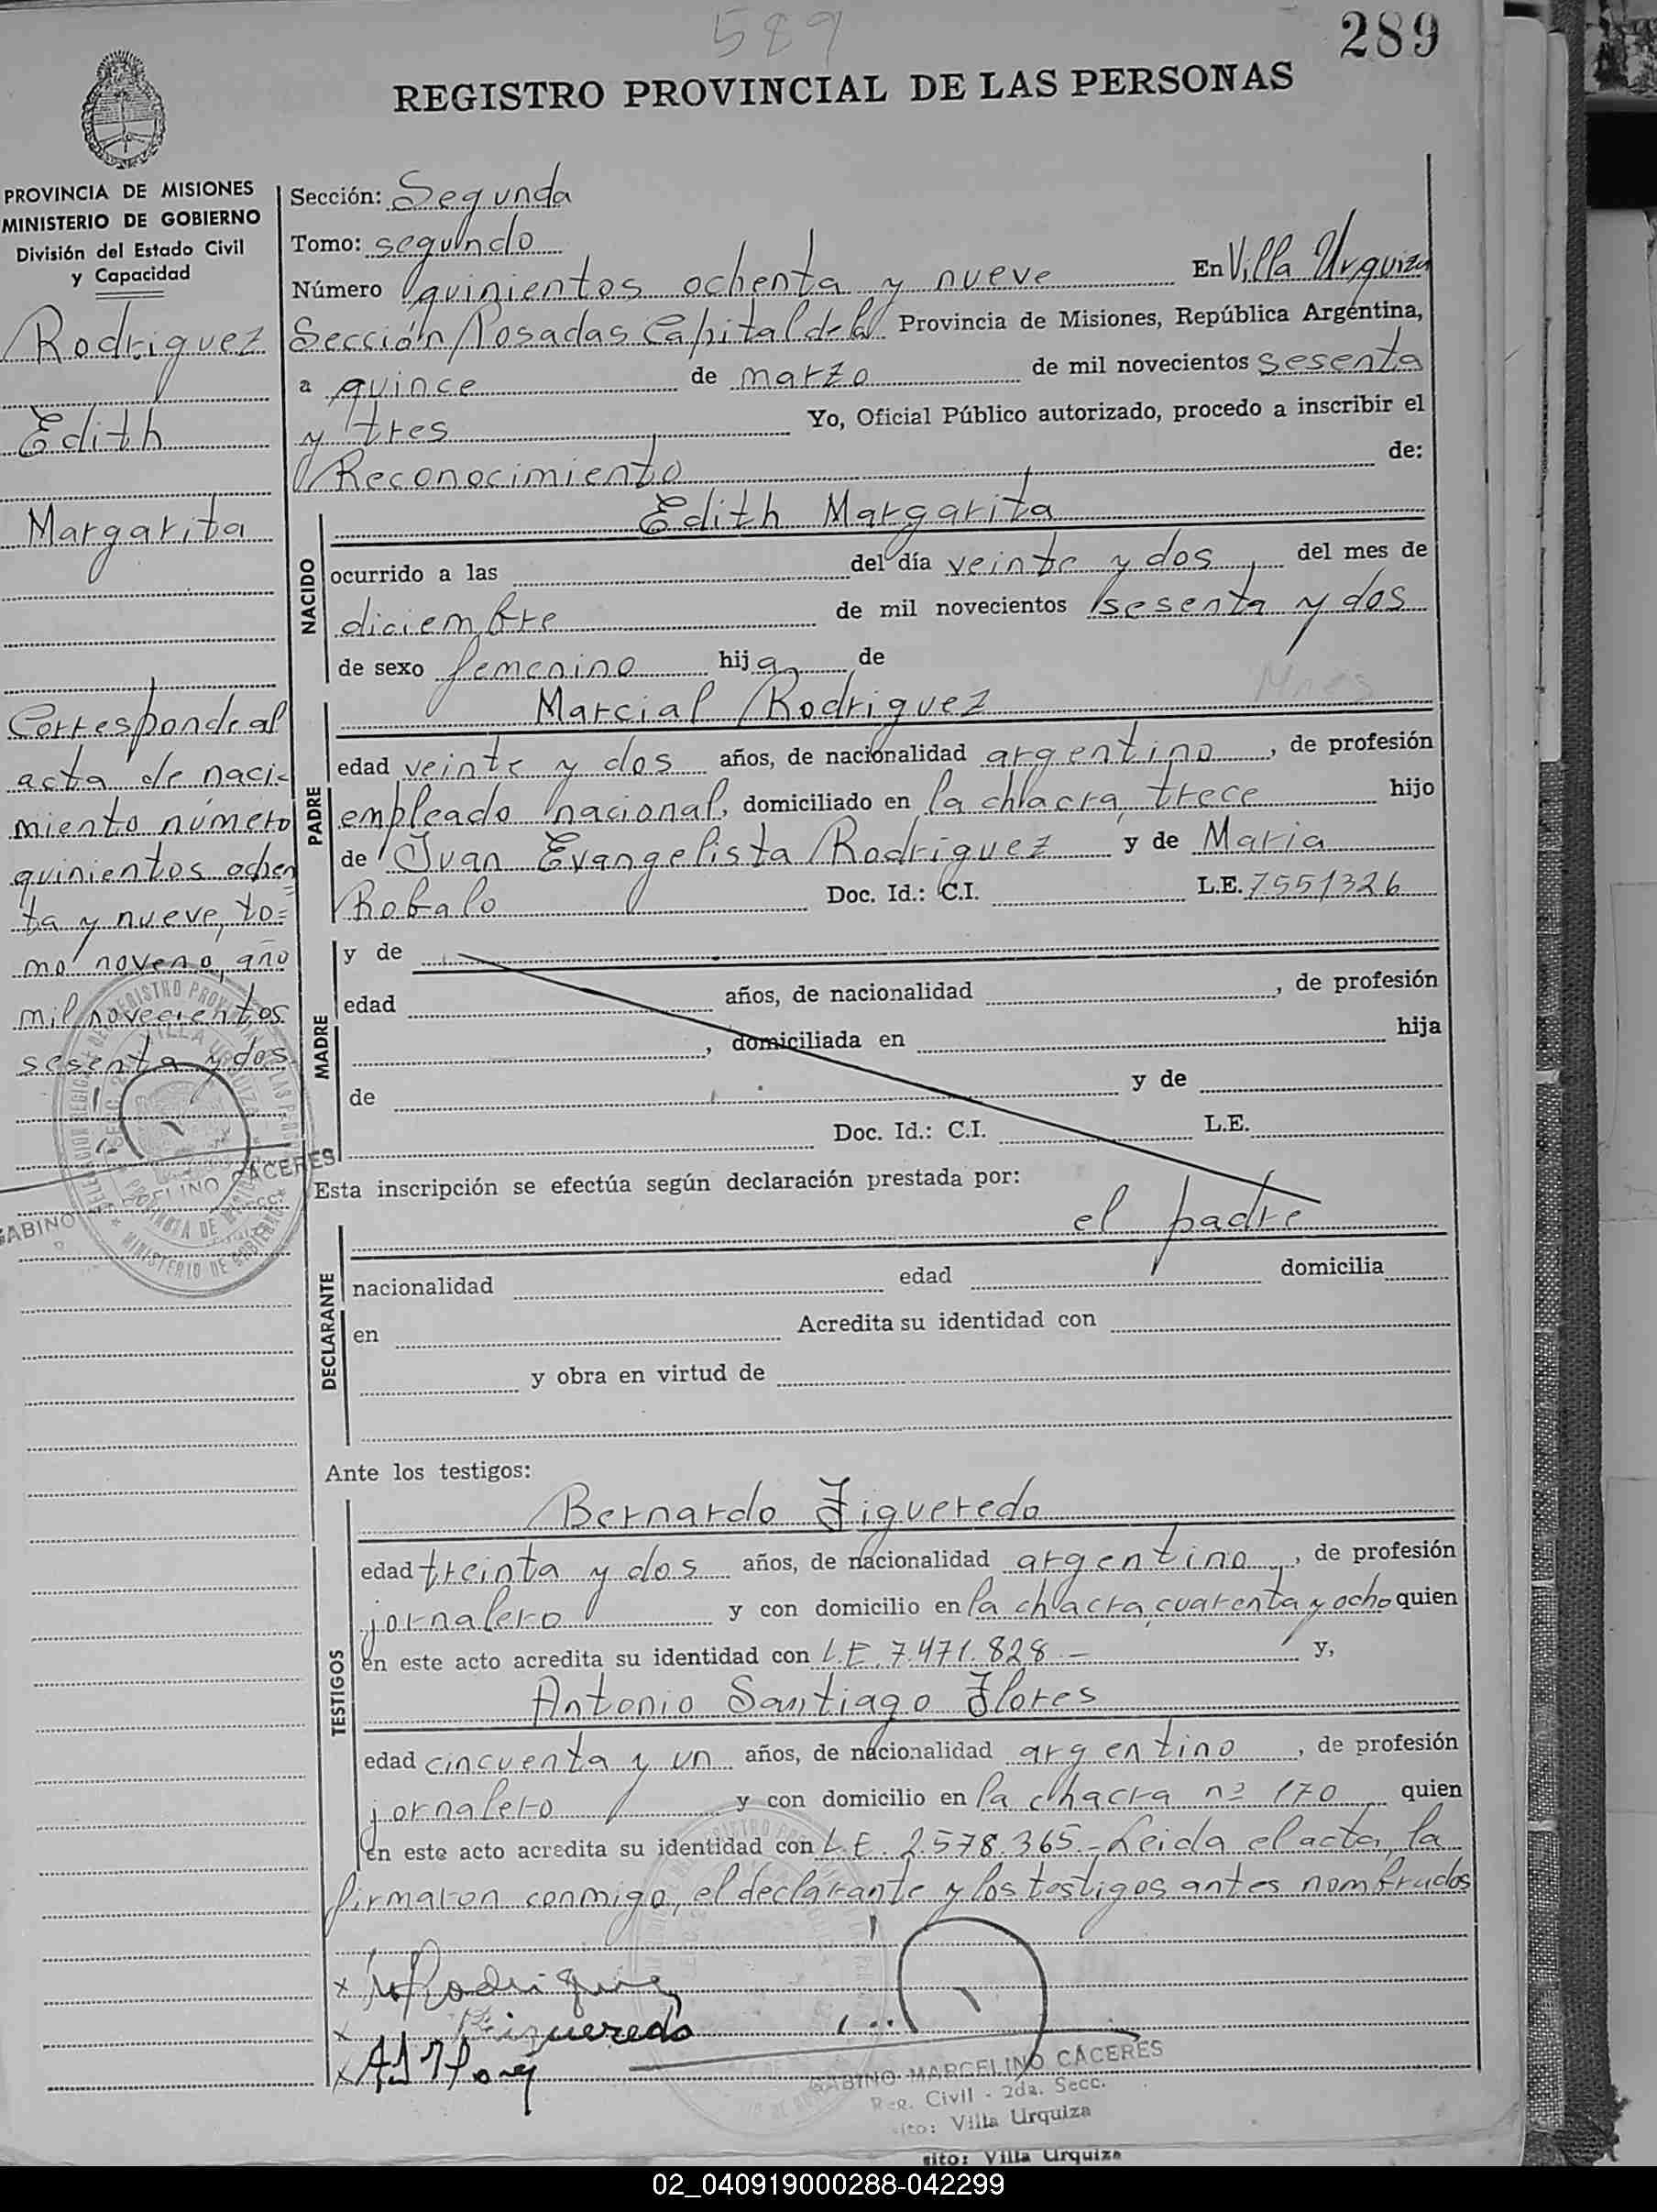 589
289
REGISTRO PROVINCIAL DE LAS PERSONAS
PROVINCIA DE MISIONES
MINISTERIO DE GOBIERNO
División del Estado Civil
y Capacidad
Rodriguez
Edith
Margarita
Corresponde al
acta de naci-
miento número
quinientos ochen
ta y nueve, to=
mo noveno, año
mil novecientos
sesenta y dos
Sección: Segunda
Tomo: segundo
Número quinientos ochenta y nueve En Villa Urquiza
Sección Posadas Capital de la Provincia de Misiones, República Argentina,
a quince de marzo de mil novecientos sesenta
y tres Yo, Oficial Público autorizado, procedo a inscribir el
Reconocimiento de:
NACIDO
Edith Margarita
ocurrido a las del día veinte y dos del mes de
diciembre de mil novecientos sesenta y dos
de sexo femenino hija de
Mnes
PADRE
Marcial Rodriguez
edad veinte y dos años, de nacionalidad argentino, de profesión
empleado nacional, domiciliado en la chacra trece hijo
de Juan Evangelista Rodriguez y de Maria
Robalo Doc. Id.: C.I. L.E. 7551326
MADRE
y de
edad años, de nacionalidad , de profesión
, domiciliada en hija
de y de
Doc. Id.: C.I. L.E.
Esta inscripción se efectúa según declaración prestada por:
DECLARANTE
el padre
nacionalidad edad domicilia
en Acredita su identidad con
y obra en virtud de
Ante los testigos:
TESTIGOS
Bernardo Figueredo
edad treinta y dos años, de nacionalidad argentino, de profesión
jornalero y con domicilio en la chacra cuarenta y ocho quien
en este acto acredita su identidad con L.E. 7.471.828.- y,
Antonio Santiago Flores
edad cincuenta y un años, de nacionalidad argentino, de profesión
jornalero y con domicilio en la chacra nº 170 quien
en este acto acredita su identidad con L.E. 2.578.365.- Leida el acta, la
firmaron conmigo, el declarante y los testigos antes nombrados
x M Rodriguez
x Figueredo
x A S Flores
GABINO MARCELINO CÁCERES
Reg. Civil - 2da. Secc.
Villa Urquiza
sito: Villa Urquiza
02_040919000288-042299